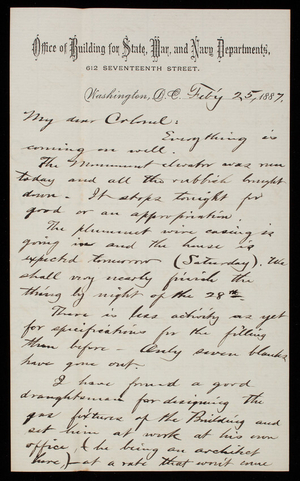 Office of Building for State, War, and Navy Departments,
612 SEVENTEENTH STREET.
Washington, D.C. Feb'y 25, 1887.
My dear Colonel:
Everything is
coming on well.
The Monument elevator was run
today and all the rubbish brought
down. It stops tonight for
good or an appropriation.
The plummet wire casing is
going in and the house is
expected tomorrow (Saturday). We
shall very nearly finish the
thing by night of the 28th.
There is less activity as yet
for specifications for the fitting
than before - Only seven blanks
have gone out.
I have found a good
draughtsman for designing the
gas fixtures of the Building and
set him at work at his own
office, (he being an architect
here) - at a rate that won't come